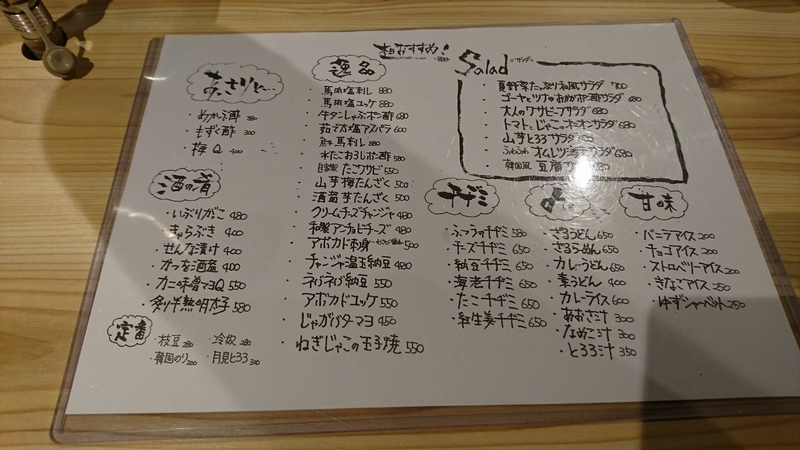 本日おすすめ!
あっさりと…
めかぶ酢 380
もずく酢 300
梅Q 400
酒の肴
いぶりがこ 480
きゃらぶき 400
せんな漬け 400
かつを酒盗 400
カニ味噌マヨQ 550
炙り半熟明太子 580
定番
枝豆 280
冷奴 280
韓国のり 200
月見とろろ 300
逸品
馬肉塩刺し 880
馬肉塩ユッケ 880
牛タンしゃぶポン酢 680
茹でた塩アスパラ 600
馬刺し 880
水たこおろしポン酢 580
たこワサビ 550
山芋梅たんざく 500
酒盗芋たんざく 500
クリームチーズチャンジャ 480
和製アンチョビチーズ 480
アボカド刺身 500
チャンジャ温玉納豆 480
ネバネバ納豆 550
アボカドユッケ 550
じゃがバターマヨ 450
ねぎじゃこの玉子焼 550
Salad サラダ
夏野菜たっぷり和風サラダ 700
ゴーヤとツナのおかかポン酢サラダ 680
大人のワサビーフサラダ 680
トマト、じゃこ、オニオンサラダ 680
山芋とろろサラダ 680
ふわふわオムレツ海老サラダ 680
韓国風豆腐サラダ
チヂミ
ふつうのチヂミ 580
チーズチヂミ 650
納豆チヂミ 650
海老チヂミ 650
たこチヂミ 650
紅生姜チヂミ 650
品
ざるうどん 650
ざるらーめん 650
カレーうどん 650
素うどん 400
カレーライス 600
あおさ汁 300
なめこ汁 300
とろろ汁 350
甘味
バニラアイス 200
チョコアイス 200
ストロベリーアイス 200
きなこアイス 250
ゆずシャーベット 250